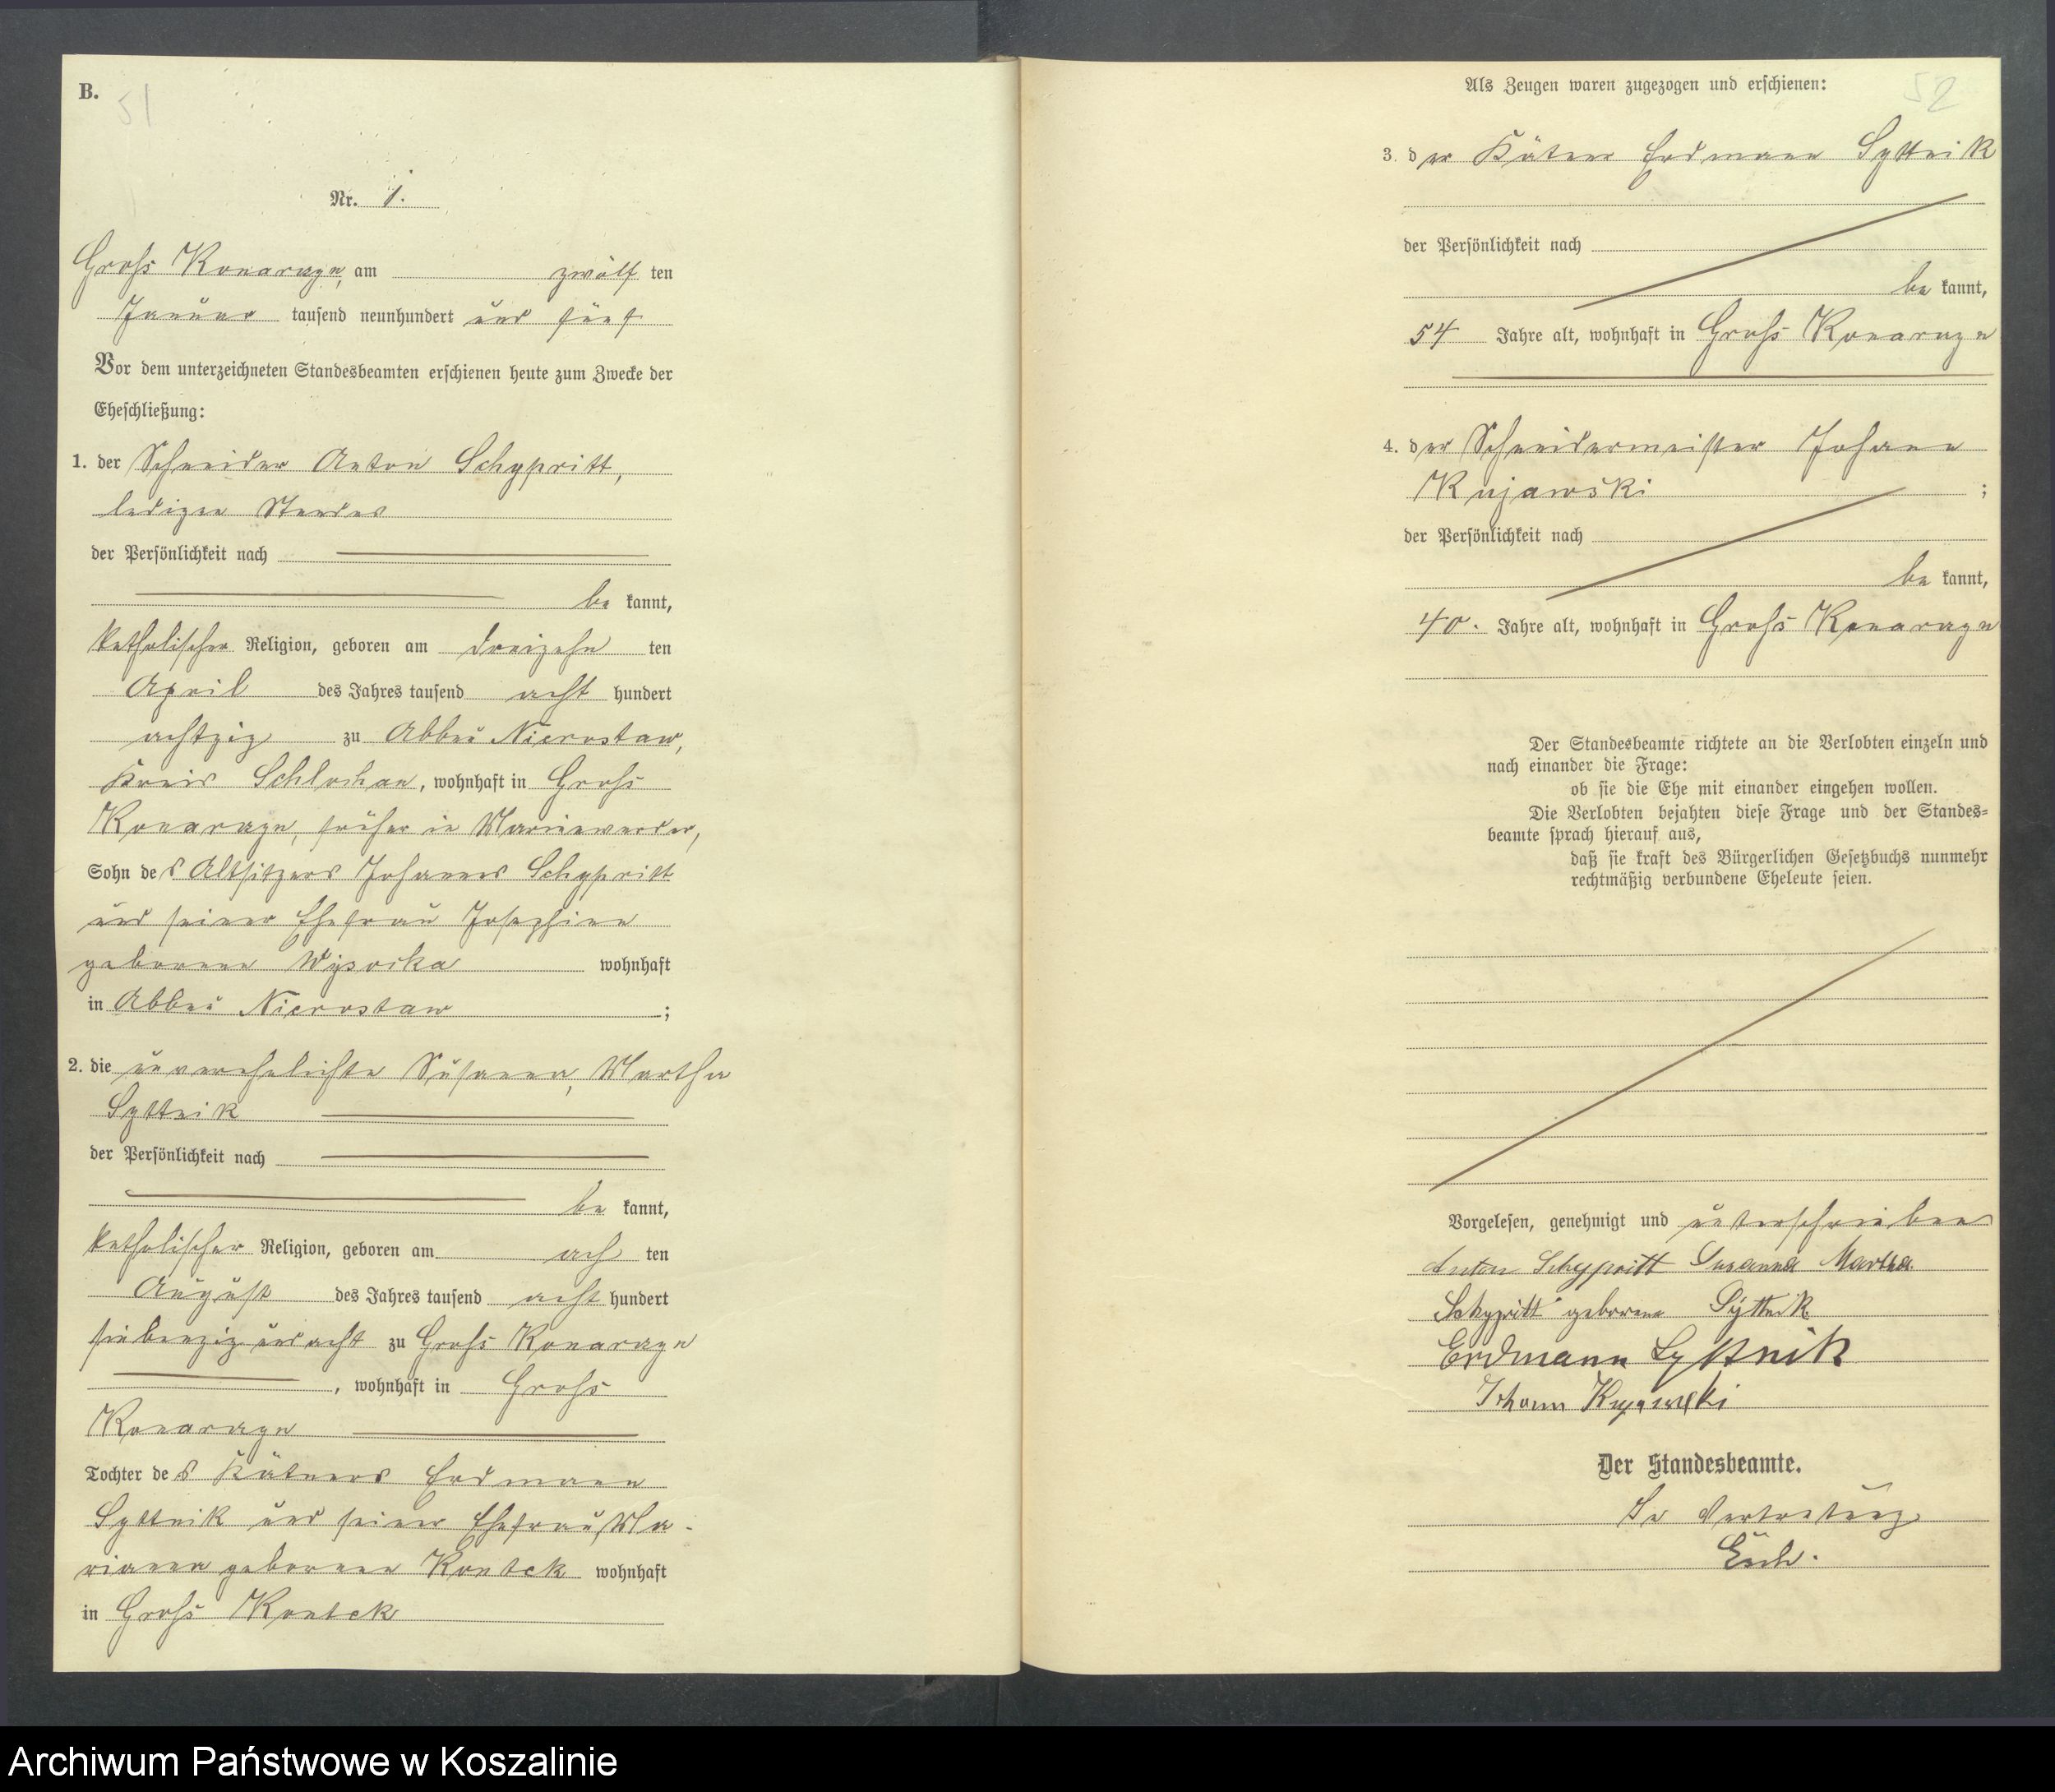 B.
51
Nr. 1.
Gross Konarzyn, am zwölf ten
Januar tausend neunhundert und fünf
Vor dem unterzeichneten Standesbeamten erschienen heute zum Zwecke der
Eheschließung:
1. der Schneider Anton Schypritt,
ledigen Standes
der Persönlichkeit nach
be kannt,
katholischer Religion, geboren am dreizehn ten
April des Jahres tausend acht hundert
achtzig zu Abbau Nierostaw,
Kreis Schlochau, wohnhaft in Gross
Konarzyn, früher in Marienwerder,
Sohn des Altsitzers Johannes Schypritt
und seiner Ehefrau Josephine
geborenen Wysocka wohnhaft
in Abbau Nierostaw ;
2. die unverehelichte Susanna, Martha
Syttnik
der Persönlichkeit nach
be kannt,
katholischer Religion, geboren am ach ten
August des Jahres tausend acht hundert
siebenzig und acht zu Gross Konarzyn
, wohnhaft in Gross
Konarzyn
Tochter des Kätners Erdmann
Syttnik und seiner Ehefrau, Ma-
rianna geborenen Kontek wohnhaft
in Gross Kontek
52
Als Zeugen waren zugezogen und erschienen:
3. der Kätner Erdmann Syttnik
der Persönlichkeit nach
be kannt,
54 Jahre alt, wohnhaft in Gross Konarzyn
4. der Schneidermeister Johann
Kujawski ;
der Persönlichkeit nach
be kannt,
40. Jahre alt, wohnhaft in Gross Konarzyn
Der Standesbeamte richtete an die Verlobten einzeln und
nach einander die Frage:
ob sie die Ehe mit einander eingehen wollen.
Die Verlobten bejahten diese Frage und der Standes=
beamte sprach hierauf aus,
daß sie kraft des Bürgerlichen Gesetzbuchs nunmehr
rechtmäßig verbundene Eheleute seien.
Vorgelesen, genehmigt und unterschrieben
Anton Schypritt Susanna Martha
Schypritt geborene Syttnik
Erdmann Syttnik
Johann Kujawski
Der Standesbeamte.
In Vertretung
Archiwum Państwowe w Koszalinie